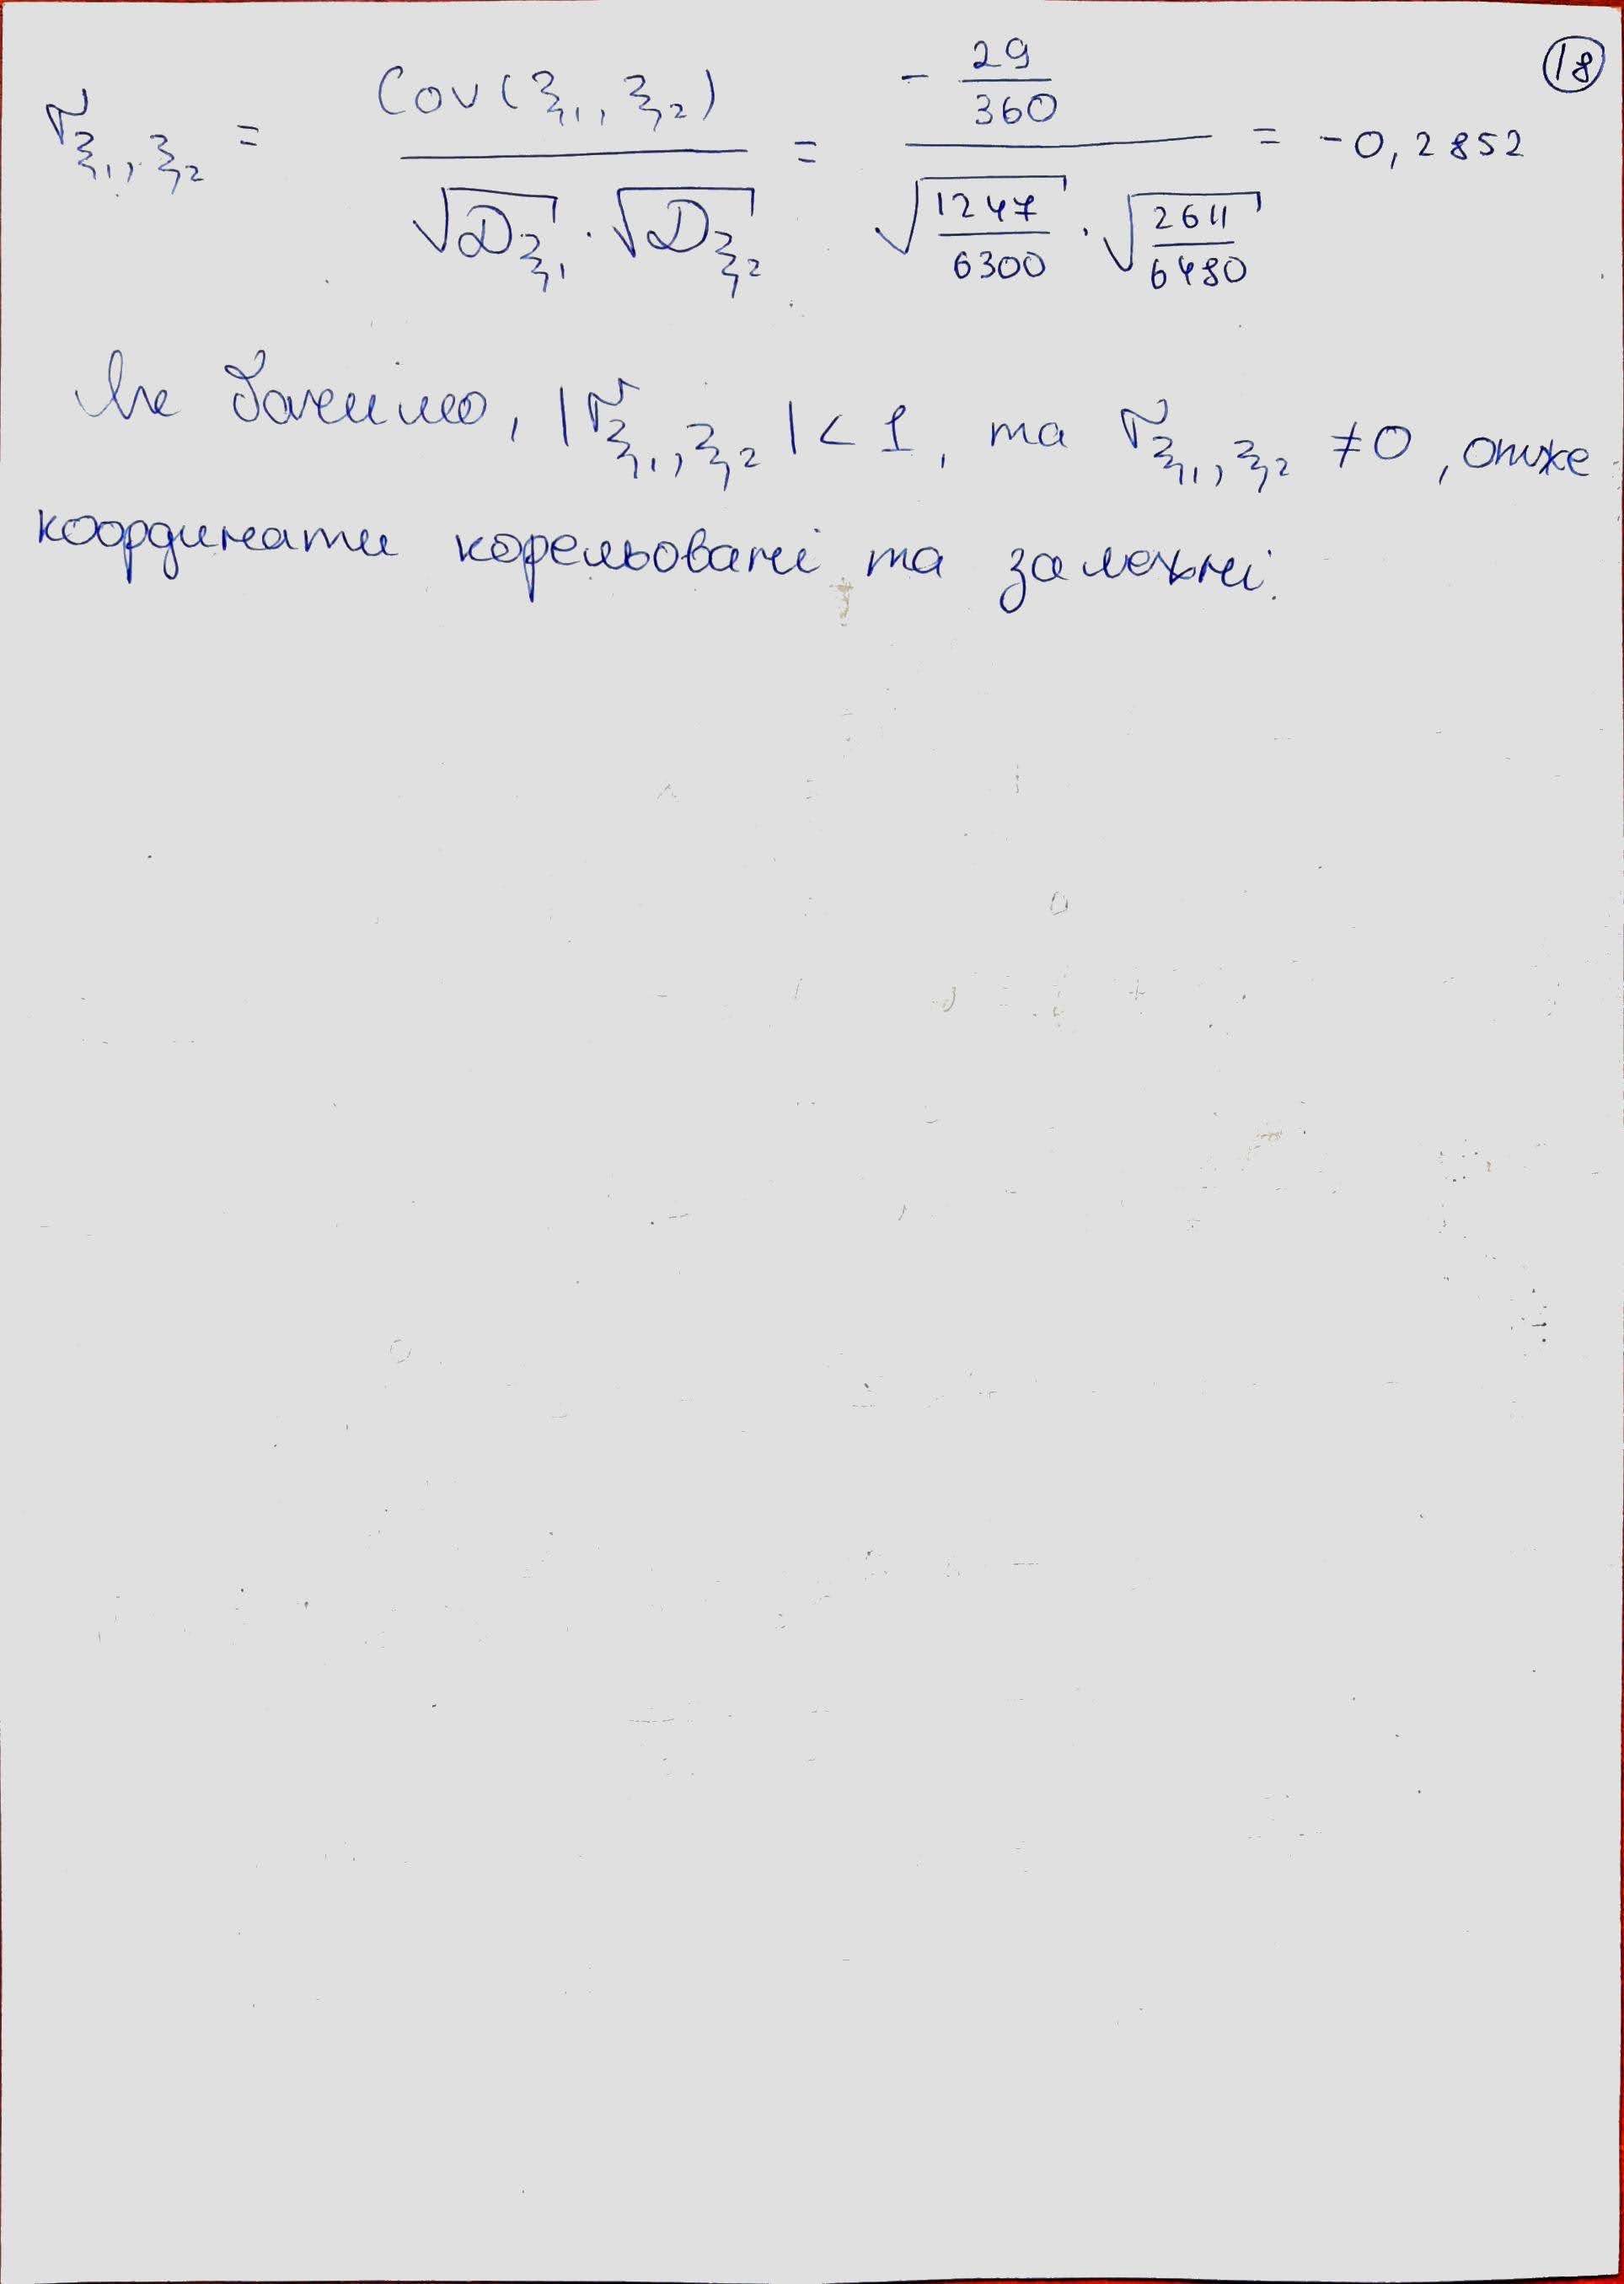 18
r_{ξ₁,ξ₂} = Cov(ξ₁, ξ₂) / (√Dξ₁ · √Dξ₂) = (- 29/360) / (√(1247/6300) · √(2611/6480)) = -0,2852
Як бачимо, |r_{ξ₁,ξ₂}| < 1, та r_{ξ₁,ξ₂} ≠ 0, отже
координати корельовані та залежні.